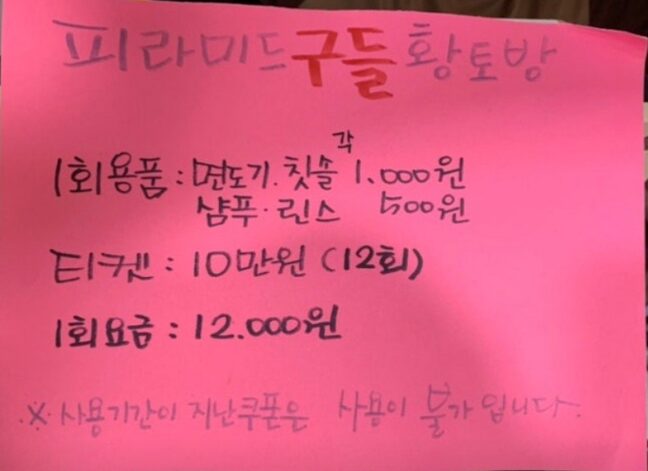 피라미드구들황토방
각
1회용품 : 면도기.칫솔 1.000원
샴푸.린스 500원
티켓 : 10만원 (12회)
1회요금 : 12.000원
※ 사용기간이 지난쿠폰은 사용이 불가 입니다.